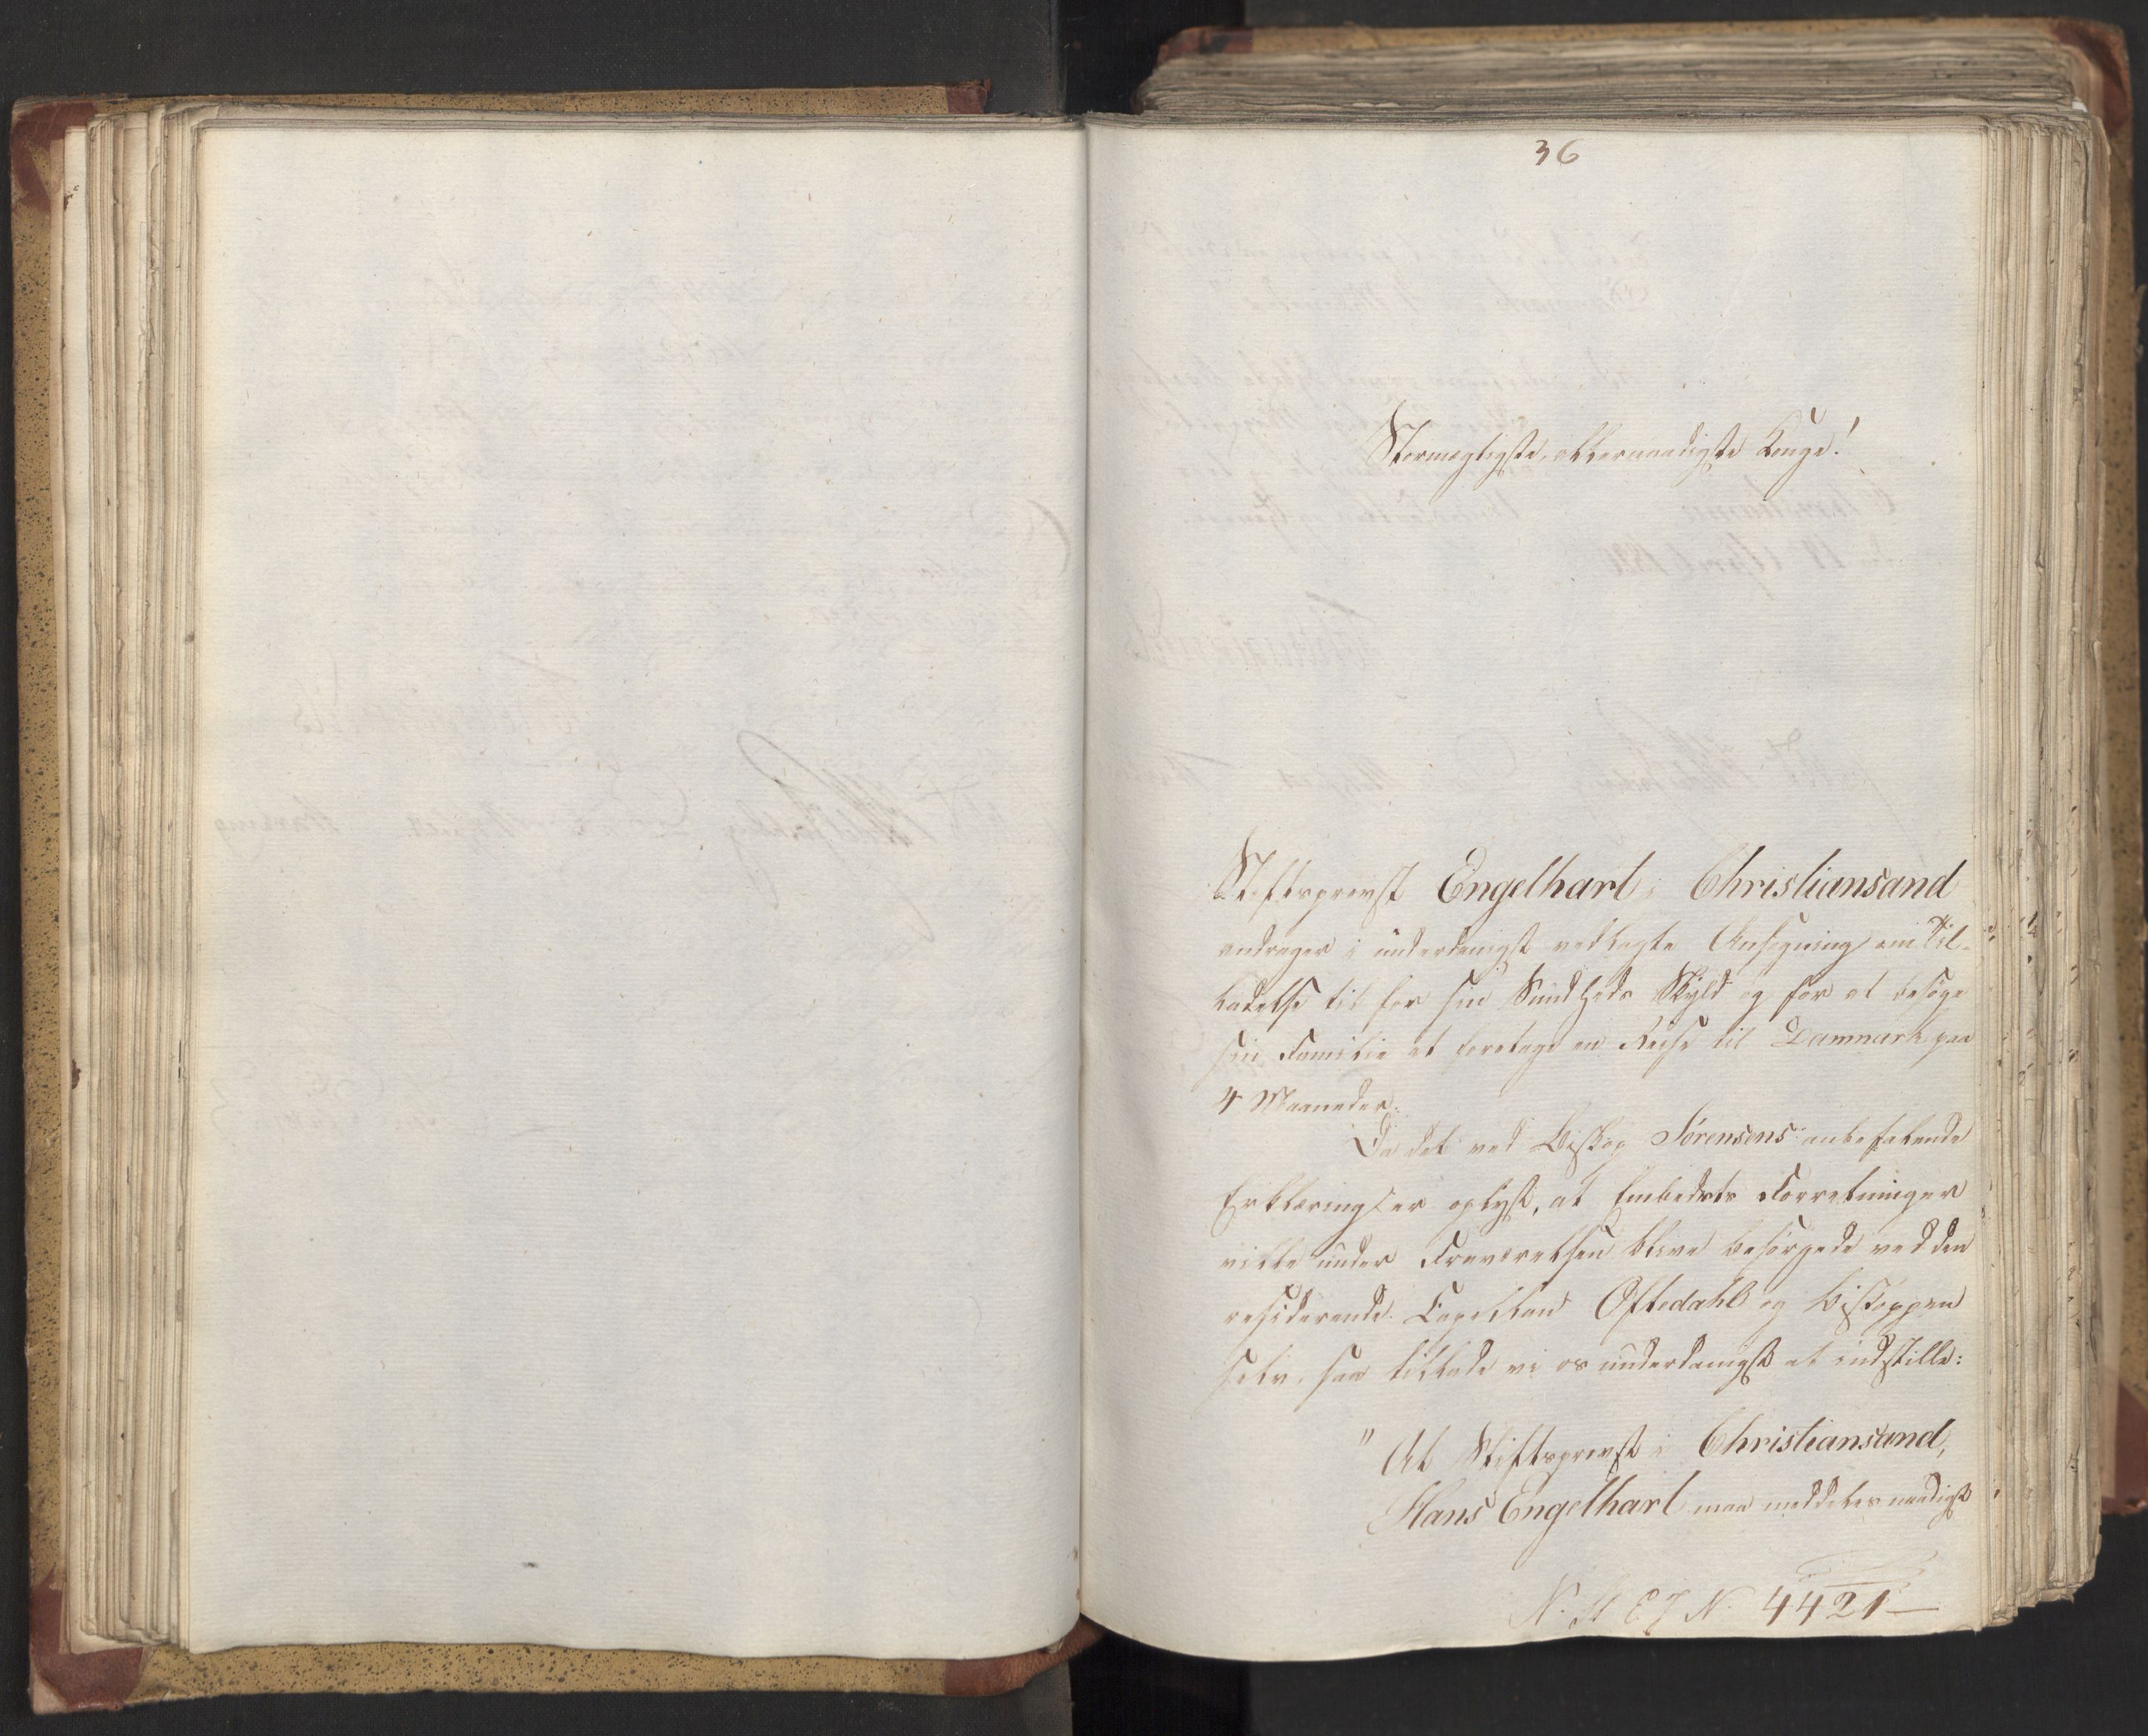 36
Stormægtigste, allernaadigste Konge!
Stiftsprovst Engelhart i Christiansand
andrager i underdanigst vedlagte Ansøgning om Til-
ladelse til for sin Sundheds Skyld og for at besøge
sin Familie at foretage en Reise til Danmark paa
4 Maaneder.
Da det ved Biskop Sørensens anbefalende
Erklæring er oplyst, at Embedets Forretninger
ville under Fraværelsen blive besørgede ved den
residerende Capellan Oftedahl og Biskoppen
selv, saa tillade vi os underdanigst at indstille:
" At Stiftsprovst i Christiansand,
Hans Engelhart maa meddeles naadigst
N. St E J N. 4421